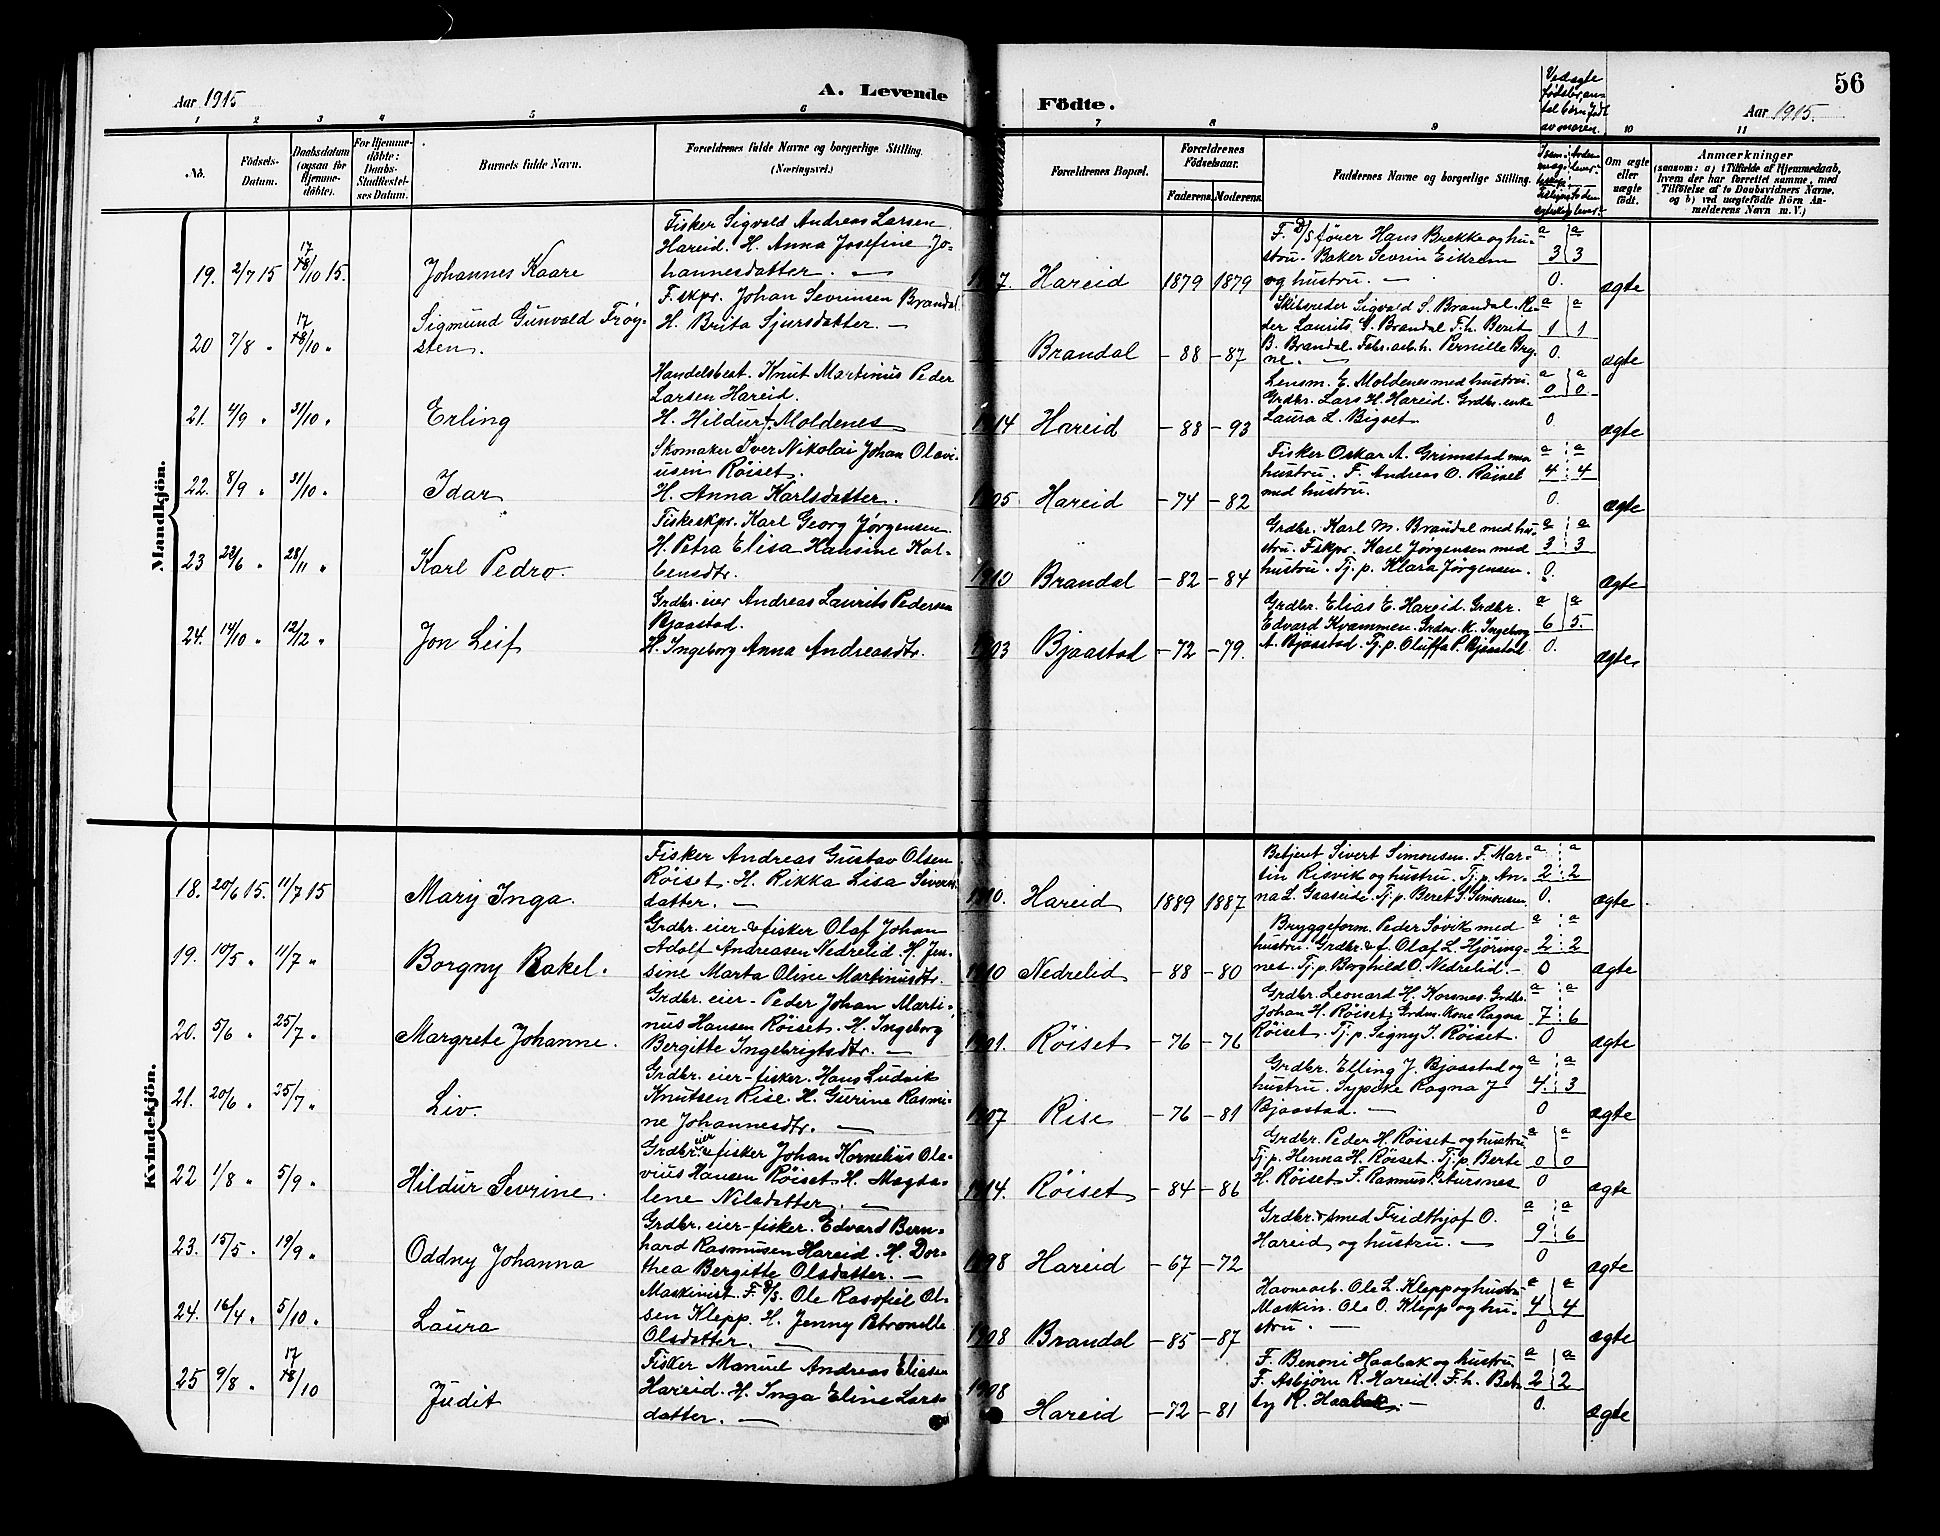 Aar 1915
A. Levende
Födte.
Vedægte
fødsler an-
tal børn født
av moren.
56
Aar 1915.
1 2 3 4 5 6 7 8 9 10 11
No.
Födsels-
Datum.
Daabsdatum
(ogsaa for
Hjemme-
döbte).
For Hjemme-
döbte:
Daabs-
Stadfestel-
ses Datum.
Barnets fulde Navn.
Forældrenes fulde Navne og borgerlige Stilling.
(Næringsvei.)
Forældrenes Bopæl.
Forældrenes
Födselsaar.
Faderens. Moderens.
Faddernes Navne og borgerlige Stilling.
Om ægte
eller
uægte
födt.
Anmærkninger
(saasom: a) i Tilfælde af Hjemmedaab,
hvem der har forrettet samme, med
Tilföielse af to Daabsvidners Navne,
og b) ved uægtefödte Börn An-
melderens Navn m. V.)
Mandkjön.
19. 2/7 15 17 18/10 15. Johannes Kaare
Fisker Sigvald Andreas Larsen
Hareid. H. Anna Josefine Jo-
hannesdatter. —
Hareid 1879 1879
F. D/S fører Hans Brekke og hu-
stru. Baker Sevrin Eikrem
og hustru. —
a a
3 3
0.
ægte
20 7/8 " 17 18/10 " Sigmund Gunvald Frøy-
sten.
F. skpr. Johan Sevrinsen Brandal
H. Brita Sjursdatter. —
Brandal — 88 — 87
Skibsreder Sigvald S. Brandal. Re-
der Laurits S. Brandal F. h. Beret
B. Brandal. Fabr. arb. h. Pernille Bry-
ne. —
a a
1 1
0.
ægte
21. 4/9 " 31/10 " Erling
Handelsbest. Knut Martinus Peder
Larsen Hareid.
H. Hildur Moldenes
1914 Hareid — 88 — 93
Lensm. E. Moldenes med hustru.
Grdbr. Lars H. Hareid. Grdbr. enke
Laura L. Bigset
a a
0 0
0.
ægte
22. 8/9 " 31/10 " Idar
Skomaker Iver Nikolai Johan Olavi-
usen Røiset.
H. Anna Karlsdatter.
1905 Hareid — 74 — 82
Fisker Oskar A. Grimstad med
hustru. F. Andreas O. Røiset
med hustru.
a a
4 4
0.
ægte
23 23/6 " 28/11 " Karl Pedro.
Fiskeskpr. Karl Georg Jørgensen
H. Petra Elisa Hansine Kol-
bensdtr.
1910 Brandal — 82 — 84
Grdbr. Karl M. Brandal med hu-
stru. F. skpr. Karl Jørgensen med
hustru. Tj. p. Klara Jørgensen.
a a
3 3
0.
ægte
24. 14/10 " 12/12 " Jon Leif
Grdbr. eier Andreas Laurits Pedersen
Bjaastad.
H. Ingeborg Anna Andreasdtr.
1903 Bjaastad — 72 — 79.
Grdbr. Elias E. Hareid. Grdbr.
Edvard Kvammen. Grdbr. K. Ingeborg
A. Bjaastad. Tj. p. Oluffa P. Bjaastad
a a
6 5.
0.
ægte
Kvindekjön.
18. 20/6 15. 11/7 15 Mary Inga.
Fisker Andreas Gustav Olsen
Røiset. H. Rikka Lisa Siverts-
datter. —
1910. Hareid 1889 1887
Betjent Sivert Simonsen. F. Mar-
tin Risvik og hustru. Tj. p. An-
na L. Gaaseide. Tj. p. Beret S. Simonsen.
a a
2 2
0.
ægte
19. 10/5 " 11/7 " Borgny Rakel.
Grdbr. eier & fisker Olaf Johan
Adolf Andreasen Nedrelid H. Jen-
sine Marta Oline Martinusdtr.
1910 Nedrelid — 88 — 80
Bryggeform. Peder Søvik med
hustru. Grdbr. & f. Olaf L. Hjøring-
nes. Tj. p. Borghild O. Nedrelid. —
a a
2 2
0
ægte
20. 5/6 " 25/7 " Margrete Johanne.
Grdbr. eier — Peder Johan Marti-
nus Hansen Røiset. H. Ingeborg
Bergitte Ingebrigtsdtr. —
1901. Røiset — 76 — 76
Grdbr. Leonard H. Korsnes. Grdbr.
Johan H. Røiset. Grdm. kone Ragna
Røiset. Tj. p. Signy J. Røiset.
a a
7 6
0
ægte
21. 20/6 " 25/7 " Liv.
Grdbr. eier — fisker. Hans Ludvik
Knutsen Rise. H. Gurine Rasmi-
ne Johannesdtr. —
1907 Rise — 76 — 81
Grdbr. Elling J. Bjaastad og
hustru. Sypike Ragna J
Bjaastad. —
a a
4. 3
0
ægte
22 1/8 " 5/9 " Hildur Sevrine.
Grdbr. eier & fisker Johan Kornelius Ola-
vius Hansen Røiset. H. Magda-
lene Nilsdatter. —
1914. Røiset — 84 — 86
Grdbr. Peder H. Røiset og hustru
Tj. p. Henna H. Røiset. Tj. p. Berte
H. Røiset F. Rasmus P. Aursnes
a a
0 0
0
ægte
23. 15/5 " 19/9 " Oddny Johanna
Grdbr. eier — fisker. Edvard Bern-
hard Rasmusen Hareid. H. Dor-
thea Bergitte Olsdatter. —
1898 Hareid — 67 — 72
Grdbr. & smed Fridthjof O.
Hareid og hustru. —
a a
9 6
0
ægte
24. 16/4 " 5/10 " Laura
Maskinist. F. D/S. Ole Rasofiel Ol-
sen Klepp. H. Jenny Petronelle
Olsdatter. —
1908 Brandal — 85 — 87
Havnearb. Ole L. Klepp og hustru
Maskin. Ole O. Klepp og hu-
stru. —
a a
4 4
0
ægte
25 9/8 " 17 18/10 Judit
Fisker Manuel Andreas Eliasen
Hareid. H. Inga Eline Lars-
datter. —
1908 Hareid — 72 — 81
F. Benoni Haabak og hustru
F. Asbjørn R. Hareid. F. h. Bet-
ty R. Haabak. —
a a
2 2
0.
ægte